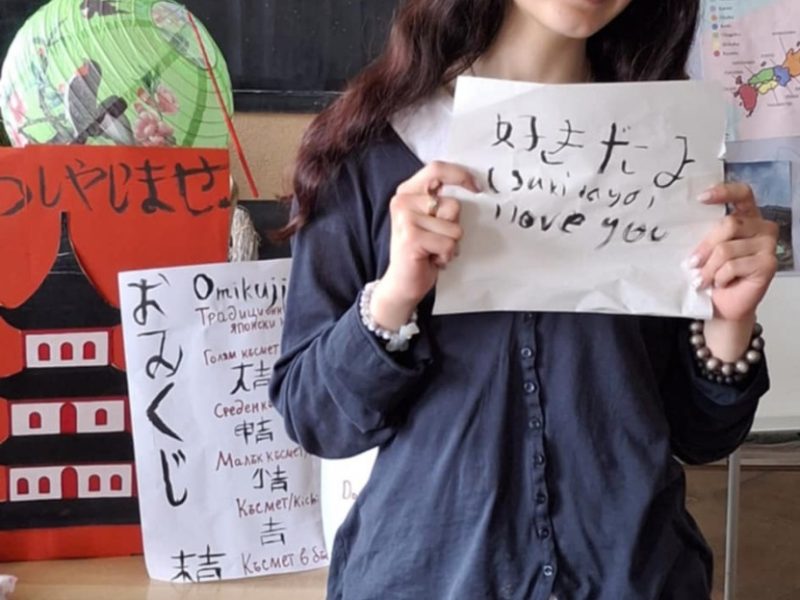 好きだよ
(suki dayo)
i love you
っしゃいませ
おみくじ
Omikuji
Традицион
японски
Голям късмет
大吉
Среден к
中吉
Малък късмет/
小吉
Късмет/kichi
吉
Късмет в бъ
末吉